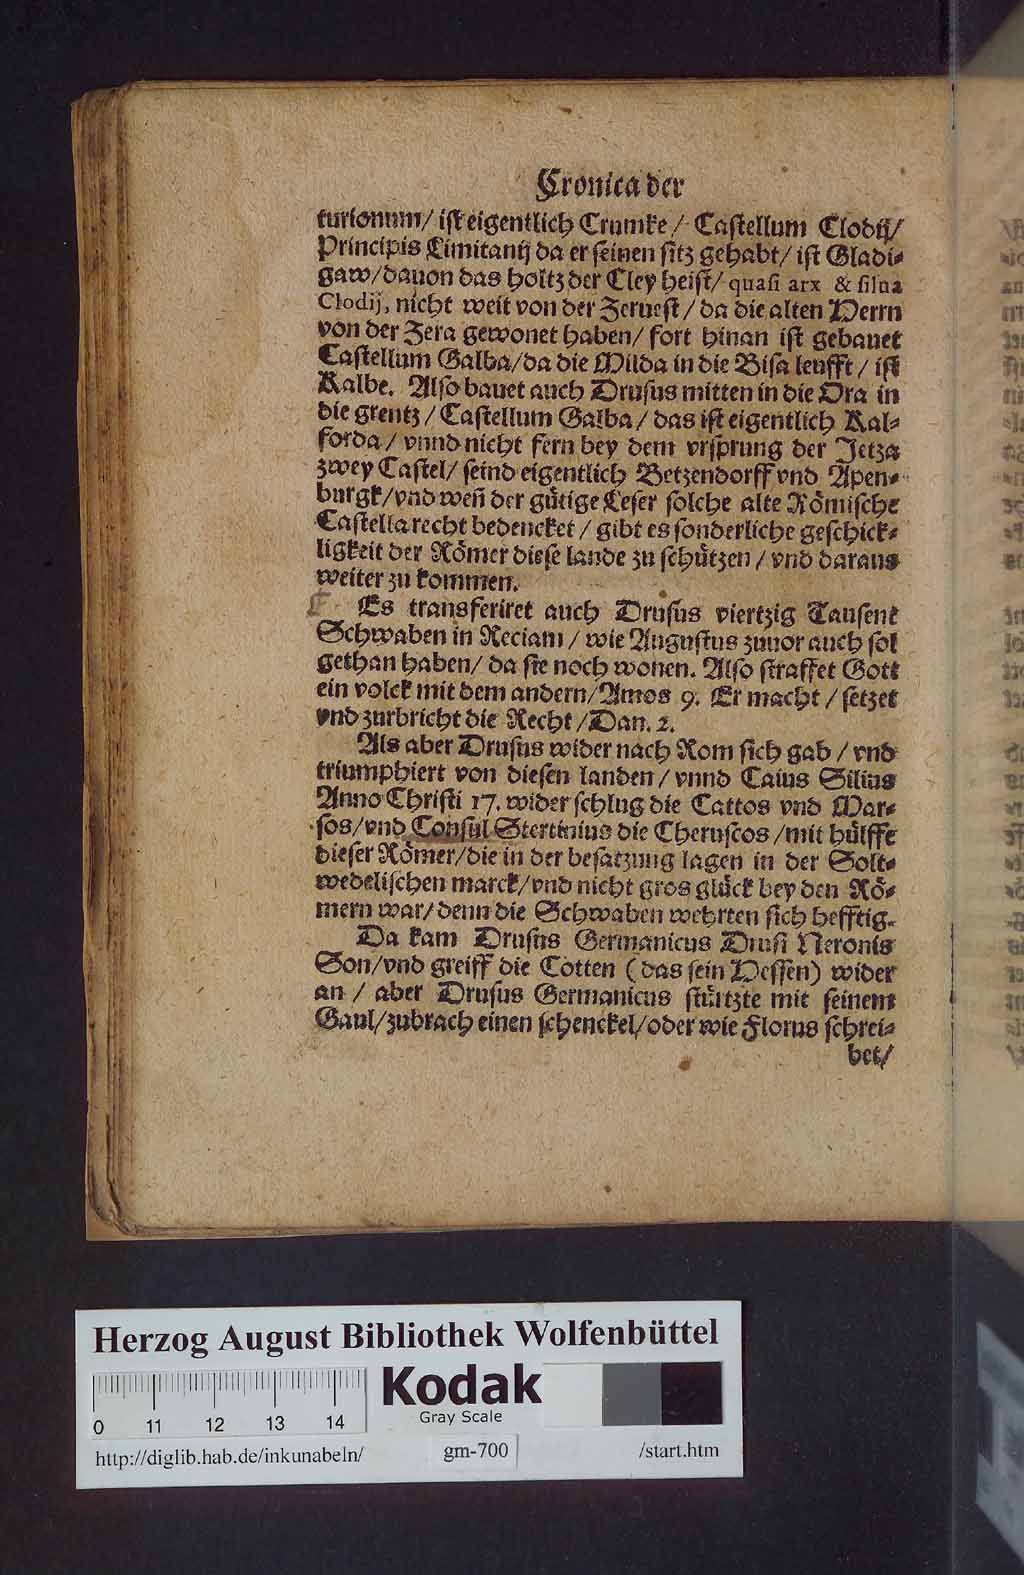 Cronica der
turionum/ ist eigentlich Crumke/ Castellum Clodij/
Principis Limitanij da er seinen sitz gehabt/ ist Gladi-
gaw/dauon das holtz der Cley heist/ quasi arx & silua
Clodij, nicht weit von der Zeruest/ da die alten Herrn
von der Zera gewonet haben/ fort hinan ist gebauet
Castellum Galba/da die Milda in die Bisa leufft/ ist
Kalbe. Also bauet auch Drusus mitten in die Ora in
die grentz/ Castellum Galba/ das ist eigentlich Kal-
forda/ vnnd nicht fern bey dem vrsprung der Jetza
zwey Castel/ seind eigentlich Betzendorff vnd Apen-
burgk/vnd weñ der gütige Leser solche alte Römische
Castella recht bedencket/ gibt es sonderliche geschick-
ligkeit der Römer diese lande zu schützen/ vnd daraus
weiter zu kommen.
Es transferiret auch Drusus viertzig Tausent
Schwaben in Reciam/ wie Augustus zuuor auch sol
gethan haben/ da sie noch wonen. Also straffet Gott
ein volck mit dem andern/Amos 9. Er macht/ setzet
vnd zurbricht die Recht/Dan. 2.
Als aber Drusus wider nach Rom sich gab/ vnd
triumphiert von diesen landen/ vnnd Caius Silius
Anno Christi 17. wider schlug die Cattos vnd Mar-
sos/vnd Consul Stertinius die Cheruscos/mit hülffe
dieser Römer/die in der besatzung lagen in der Solt-
wedelischen marck/vnd nicht gros glück bey den Rö-
mern war/ denn die Schwaben wehrten sich hefftig.
Da kam Drusus Germanicus Drusi Neronis
Son/vnd greiff die Cotten (das sein Hessen) wider
an/ aber Drusus Germanicus stürtzte mit seinem
Gaul/zubrach einen schenckel/oder wie Florus schrei-
bet/
Herzog August Bibliothek Wolfenbüttel
0 11 12 13 14
Kodak
Gray Scale
http://diglib.hab.de/inkunabeln/ gm-700 /start.htm